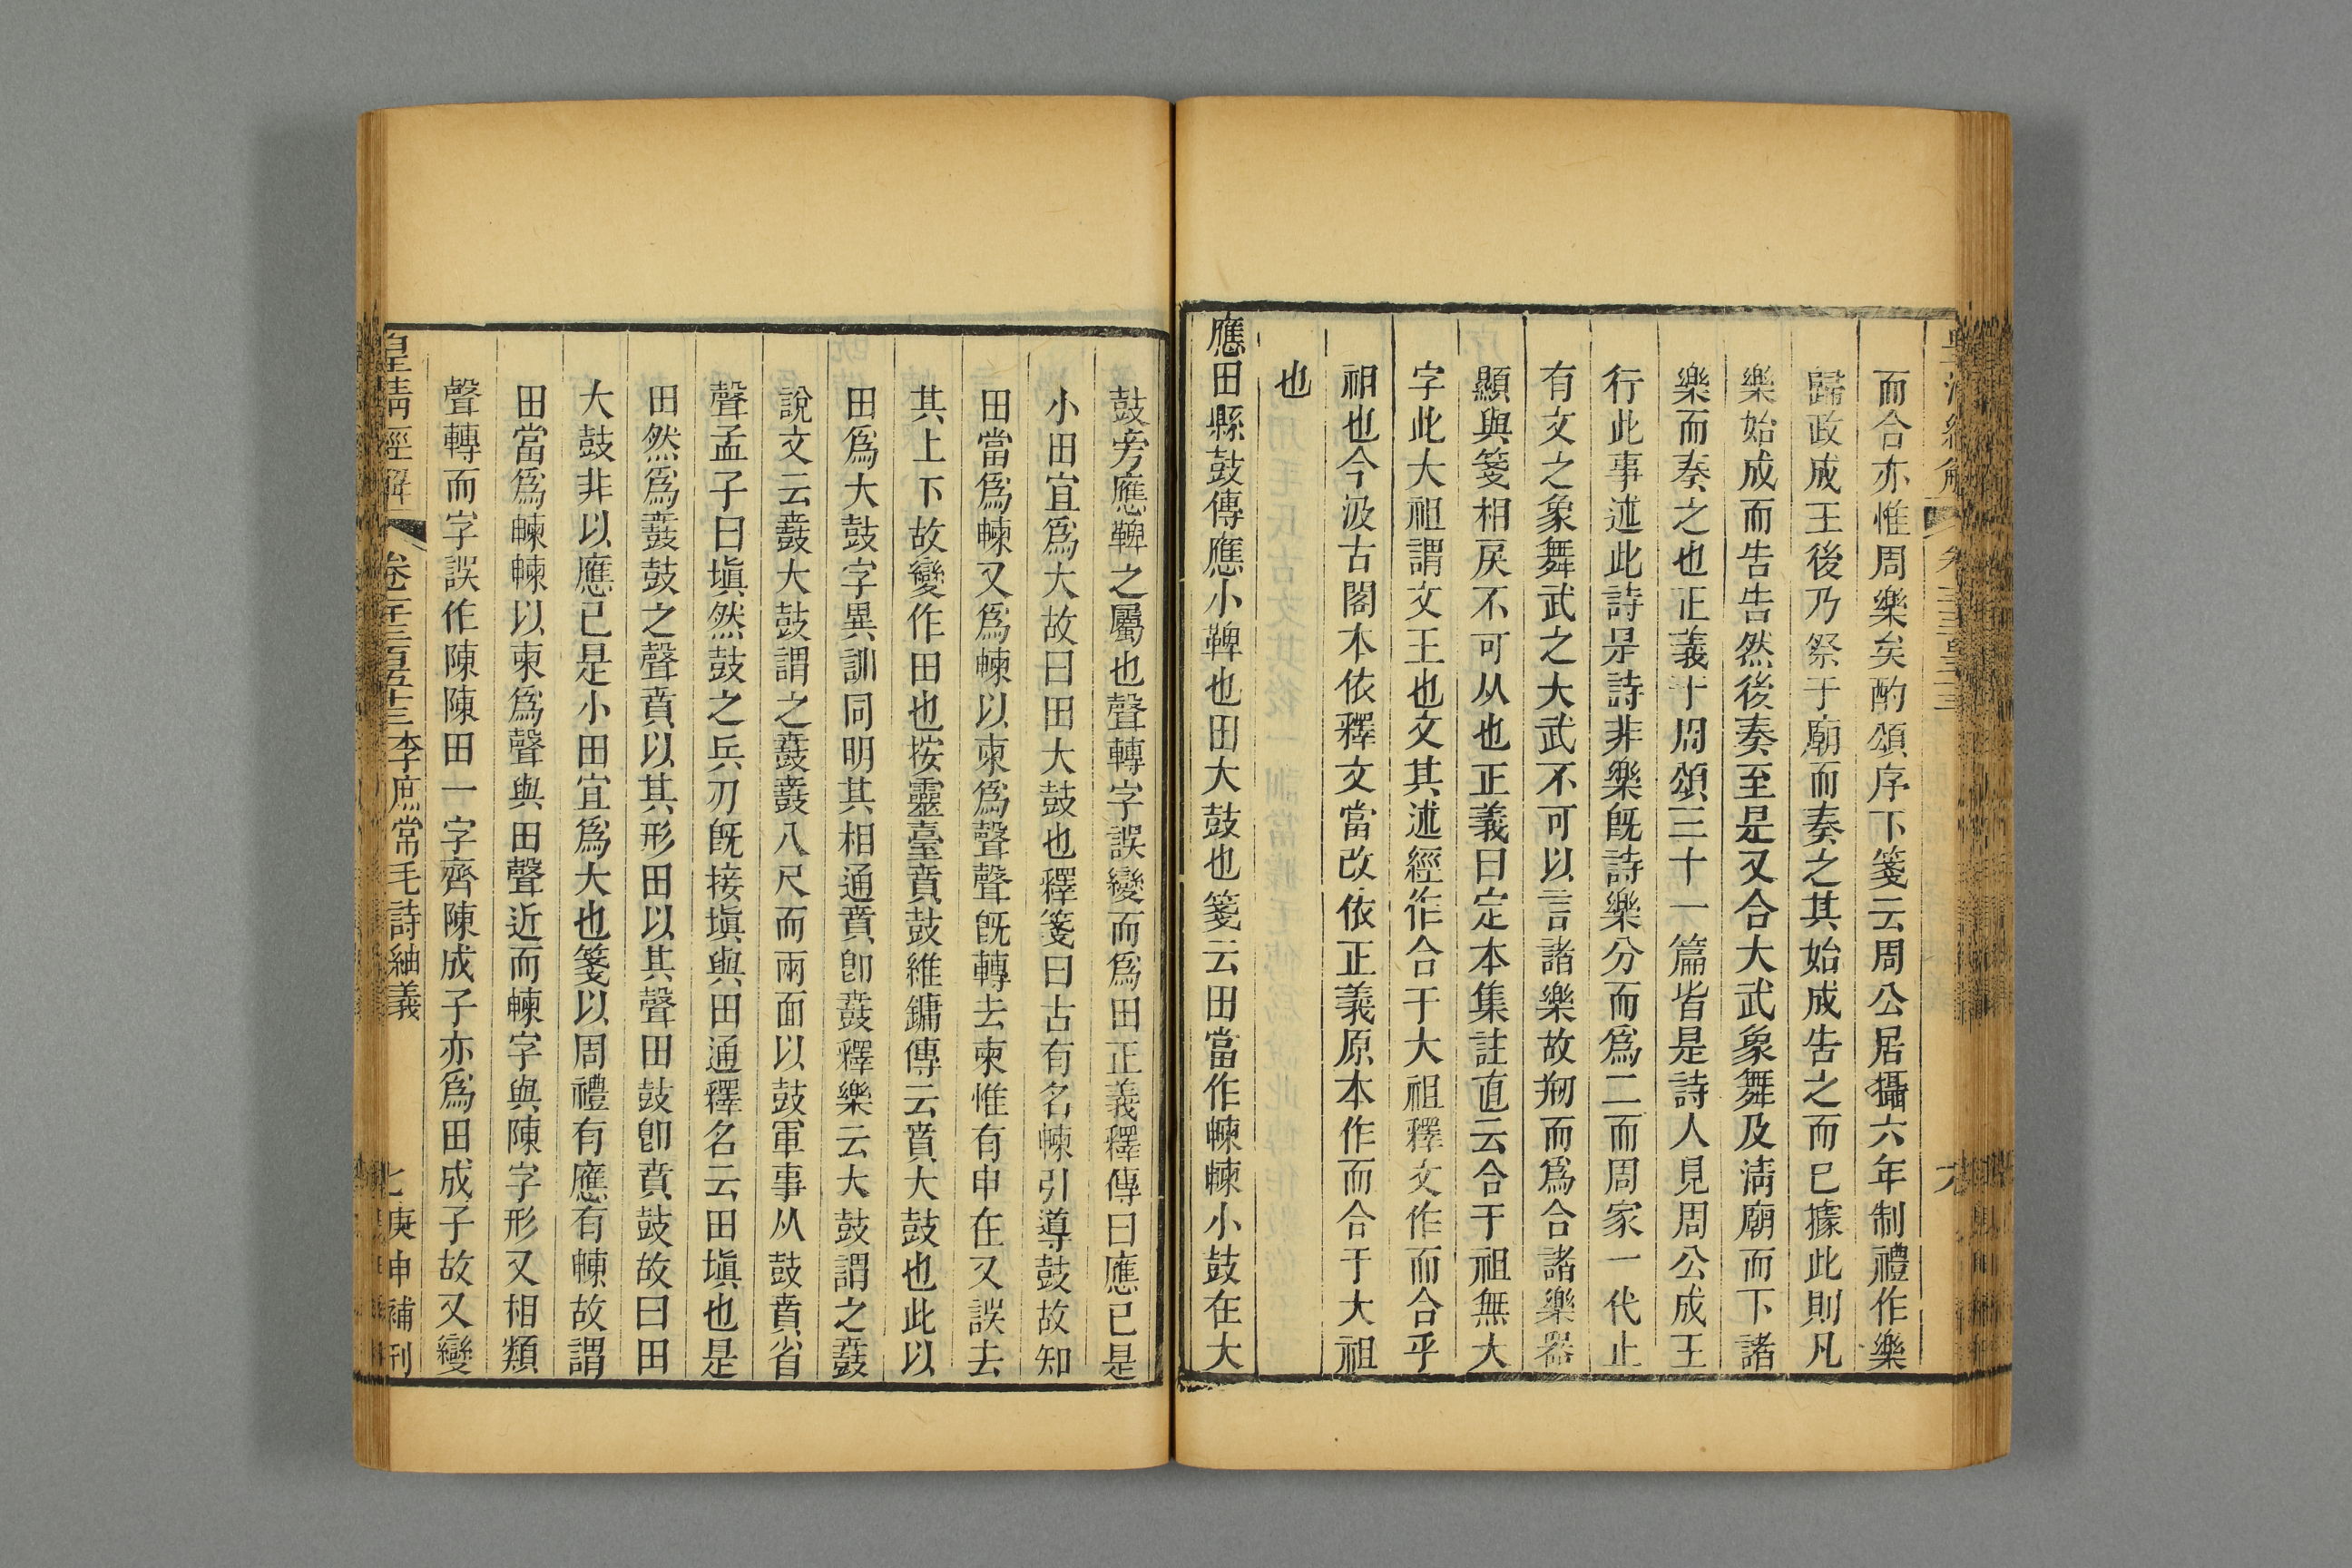 而合亦惟周樂矣酌頌序下箋云周公居攝六年制禮作樂
歸政成王後乃祭于廟而奏之其始成告之而已據此則凡
樂始成而告告然後奏至是又合大武象舞及淸廟而下諸
樂而奏之也正義十周頌三十一篇皆是詩人見周公成王
行此事述此詩是詩非樂旣詩樂分而爲二而周家一代止
有文之象舞武之大武不可以言諸樂故剏而爲合諸樂器
顯與箋相戾不可从也正義曰定本集註直云合于祖無大
字此大祖謂文王也文其述經作合于大祖釋文作而合乎
祖也今汲古閣本依釋文當改依正義原本作而合于大祖
也
應田縣鼓傳應小鞞也田大鼓也箋云田當作朄朄小鼓在大
鼓旁應鞞之屬也聲轉字誤變而爲田正義釋傳曰應已是
小田宜爲大故曰田大鼓也釋箋曰古有名朄引導鼓故知
田當爲朄又爲朄以柬爲聲聲旣轉去柬惟有申在又誤去
其上下故變作田也按靈臺賁鼓維鏞傳云賁大鼓也此以
田爲大鼓字異訓同明其相通賁卽鼖釋樂云大鼓謂之鼖
說文云鼖大鼓謂之鼖鼖八尺而兩面以鼓軍事从鼓賁省
聲孟子曰塡然鼓之兵刃旣接塡與田通釋名云田塡也是
田然爲鼖鼓之聲賁以其形田以其聲田鼓卽賁鼓故曰田
大鼓非以應已是小田宜爲大也箋以周禮有應有朄故謂
田當爲朄朄以柬爲聲與田聲近而朄字與陳字形又相類
聲轉而字誤作陳陳田一字齊陳成子亦爲田成子故又變
皇淸經解 卷一千三百五十三 李庶常毛詩紬義 七 庚申補刊